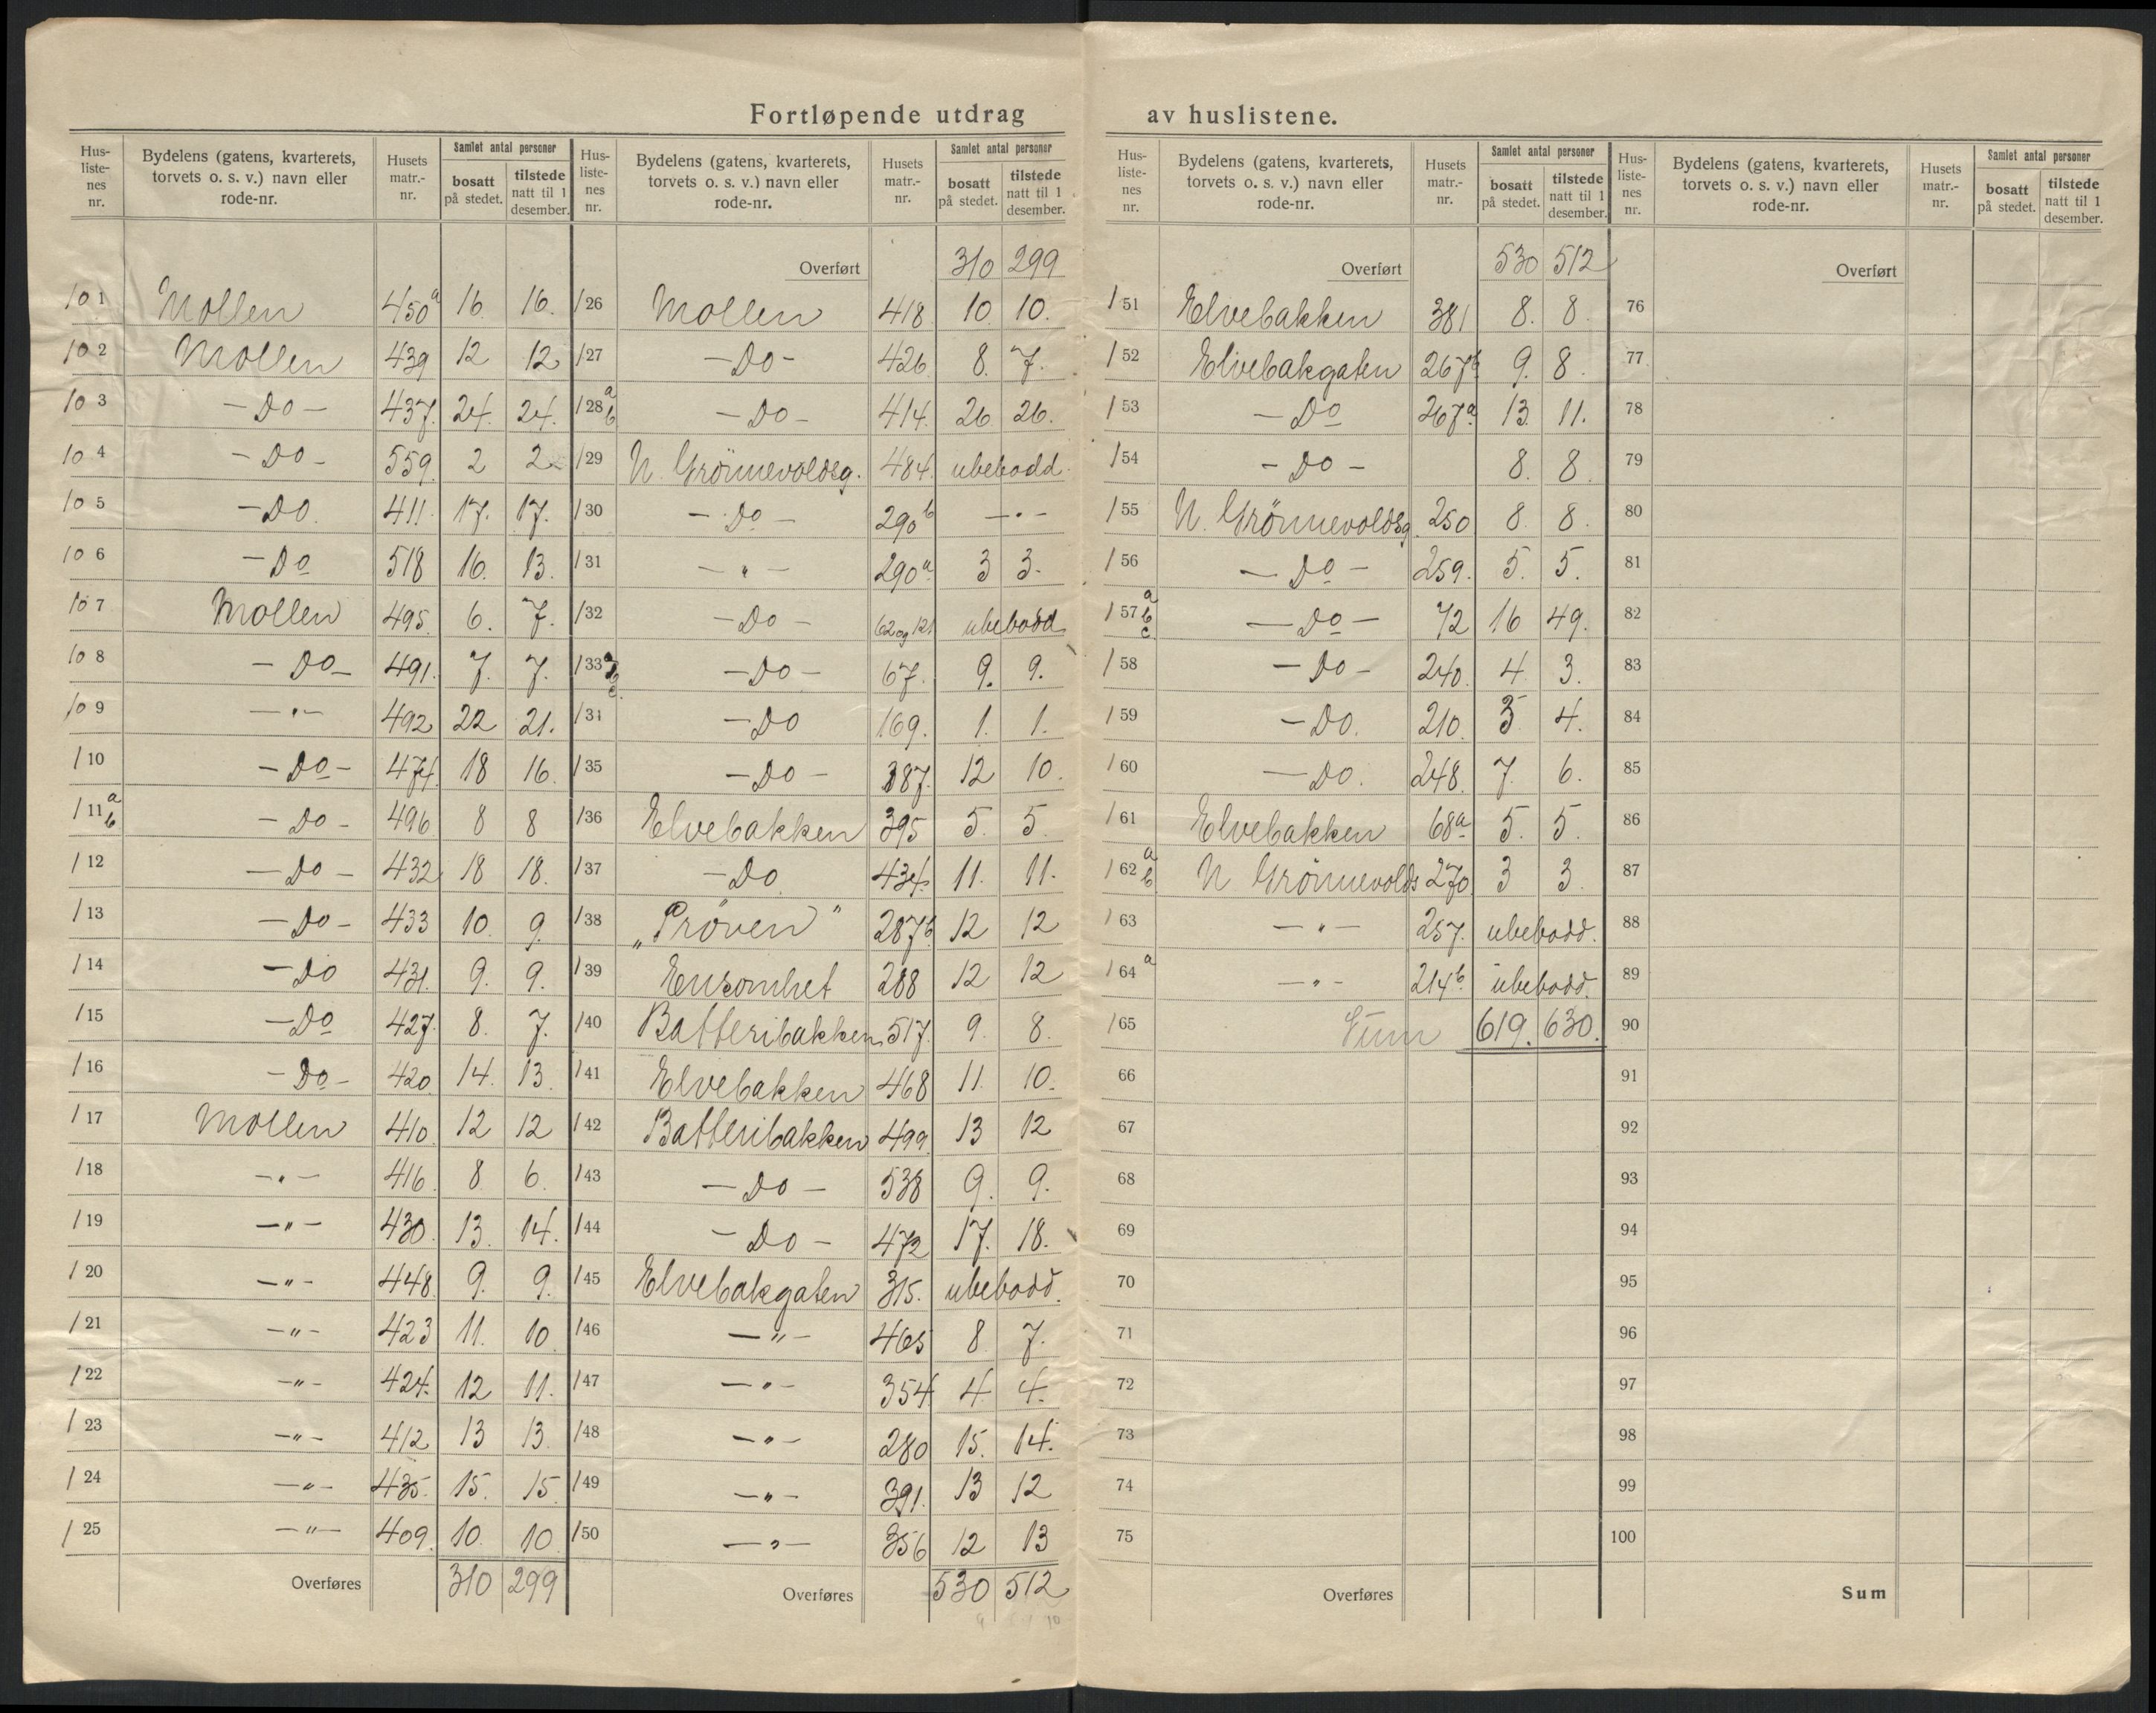 Fortløpende utdrag av huslistene.
Hus-listenes nr. | Bydelens (gatens, kvarterets, torvets o. s. v.) navn eller rode-nr. | Husets matr.-nr. | Samlet antal personer | bosatt på stedet. | tilstede natt til 1 desember.
101 Mollen 450a 16. 16.
102 Mollen 439 12 12
103 -Do- 437. 24. 24.
104 -Do- 559. 2 2
105 -Do. 411. 17. 17.
106 -Do 518 16. 13.
107 Mollen 495. 6. 7.
108 -Do- 491. 7. 7.
109 -"- 492 22 21.
110 -Do- 474. 18 16.
111 a b -Do- 496 8 8
112 -Do- 432 18 18.
113 -Do- 433 10. 9.
114 -Do 431. 9. 9.
115 -Do 427. 8. 7.
116 -Do- 420. 14. 13.
117 Mollen 410. 12 12
118 -"- 416. 8 6.
119 -"- 430. 13. 14.
120 -"- 448. 9. 9.
121 -"- 423 11. 10
122 -"- 424. 12 11.
123 -"- 412 13 13.
124 -"- 435. 15. 15
125 -"- 409. 10. 10
Overføres 310 299
Hus-listenes nr. | Bydelens (gatens, kvarterets, torvets o. s. v.) navn eller rode-nr. | Husets matr.-nr. | Samlet antal personer | bosatt på stedet. | tilstede natt til 1 desember.
Overført 310 299
126 Mollen 418 10. 10.
127 -Do- 426 8. 7.
128 a b -Do- 414. 26 26.
129 N. Grönnevoldsg. 484. ubebodd.
130 -Do- 290b -"-
131 -"- 290a 3 3.
132 -Do- 62 og 121 ubebodd
133 -Do- 67. 9. 9.
134 -Do 169. 1. 1.
135 -Do- 387. 12 10.
136 Elvebakken 395 5. 5.
137 -Do. 434. 11. 11.
138 „Prøven" 287b 12 12
139 Ensomhet 288 12 12
140 Batteribakken 517. 9. 8.
141 Elvebakken 468 11. 10.
142 Batteribakken 499. 13 12
143 -Do- 538 9. 9.
144 -Do- 472 17. 18.
145 Elvebakgaten 315. ubebodd.
146 -"- 465 8 7.
147 -"- 354 4. 4.
148 -"- 280 15. 14.
149 -"- 391. 13 12
150 -"- 356 12 13
Overføres 530 512
Hus-listenes nr. | Bydelens (gatens, kvarterets, torvets o. s. v.) navn eller rode-nr. | Husets matr.-nr. | Samlet antal personer | bosatt på stedet. | tilstede natt til 1 desember.
Overført 530 512
151 Elvebakken 381 8. 8.
152 Elvebakgaten 267b 9. 8.
153 -Do 267a 13. 11.
154 -Do- 8. 8.
155 N. Grönnevoldsg. 250 8. 8.
156 -Do- 259. 5. 5.
157 a b c -Do- 72 16 49.
158 -Do- 240. 4. 3.
159 -Do. 210. 3 4.
160 -Do. 248. 7. 6.
161 Elvebakken 68a 5. 5.
162 a b N Grönnevolds 270 3 3.
163 -"- 257. ubebodd.
164 a -"- 214b. ubebodd.
165 Sum 619. 630.
66
67
68
69
70
71
72
73
74
75
Overføres
Hus-listenes nr. | Bydelens (gatens, kvarterets, torvets o. s. v.) navn eller rode-nr. | Husets matr.-nr. | Samlet antal personer | bosatt på stedet. | tilstede natt til 1 desember.
Overført
76
77
78
79
80
81
82
83
84
85
86
87
88
89
90
91
92
93
94
95
96
97
98
99
100
Sum